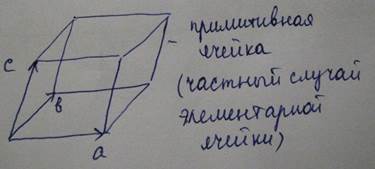 примитивная
ячейка
(частный случай
элементарной
ячейки)
c
в
a